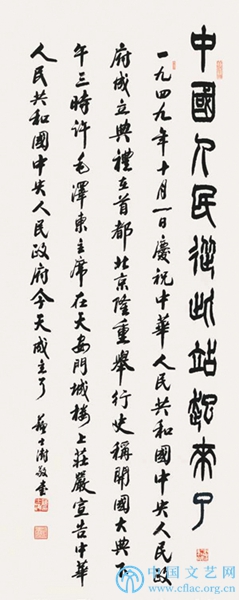 中國人民從此站起來了
一九四九年十月一日慶祝中華人民共和國中央人民政
府成立典禮在首都北京隆重舉行史稱開國大典下
午三時許毛澤東主席在天安門城樓上莊嚴宣告中華
人民共和國中央人民政府今天成立了 蘇士澍敬書
中国文艺网
www.cflac.org.cn